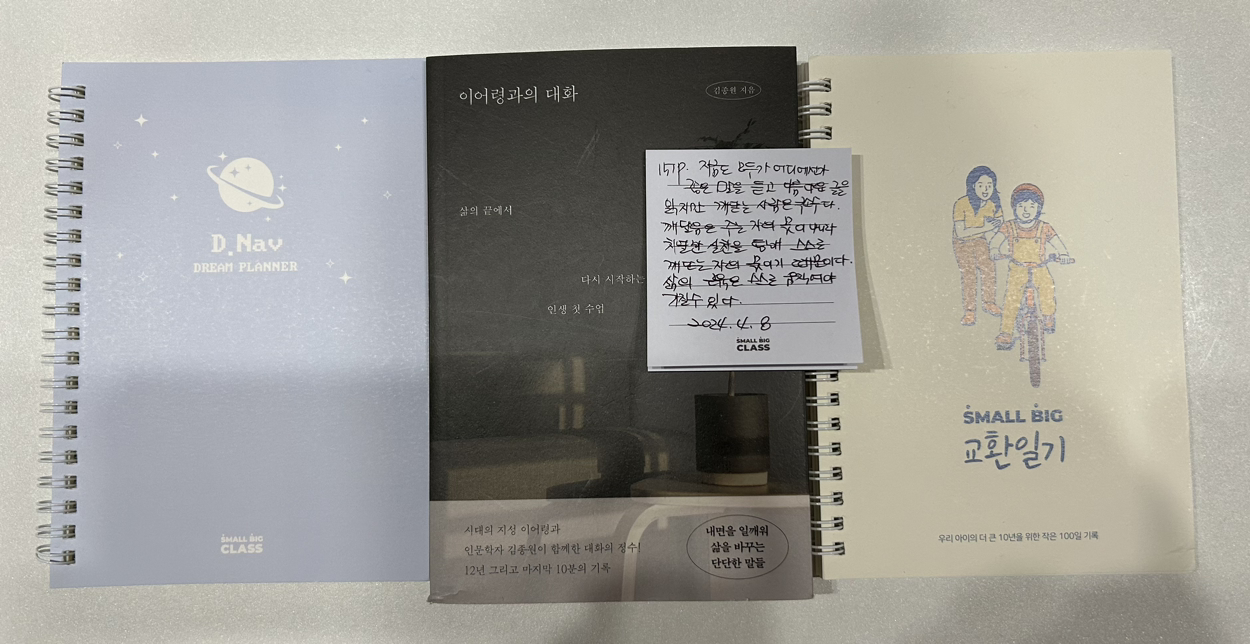 D.Nav
DREAM PLANNER
SMALL BIG
CLASS
이어령과의 대화
김종원 지음
삶의 끝에서
다시 시작하는
인생 첫 수업
시대의 지성 이어령과
인문학자 김종원이 함께한 대화의 정수!
12년 그리고 마지막 10분의 기록
내면을 일깨워
삶을 바꾸는
단단한 말들
157P. 지금도 모두가 어디에선가
좋은 말을 듣고 아름다운 글을
읽지만 깨닫는 사람은 소수다.
깨달음은 주는 자의 몫이 아니라
치열한 실천을 통해 스스로
깨닫는 자의 몫이기 때문이다.
삶의 스스로 움직여야
가질 수 있다.
2024. 4. 8
SMALL BIG
CLASS
SMALL BIG
교환일기
우리 아이의 더 큰 10년을 위한 작은 100일 기록